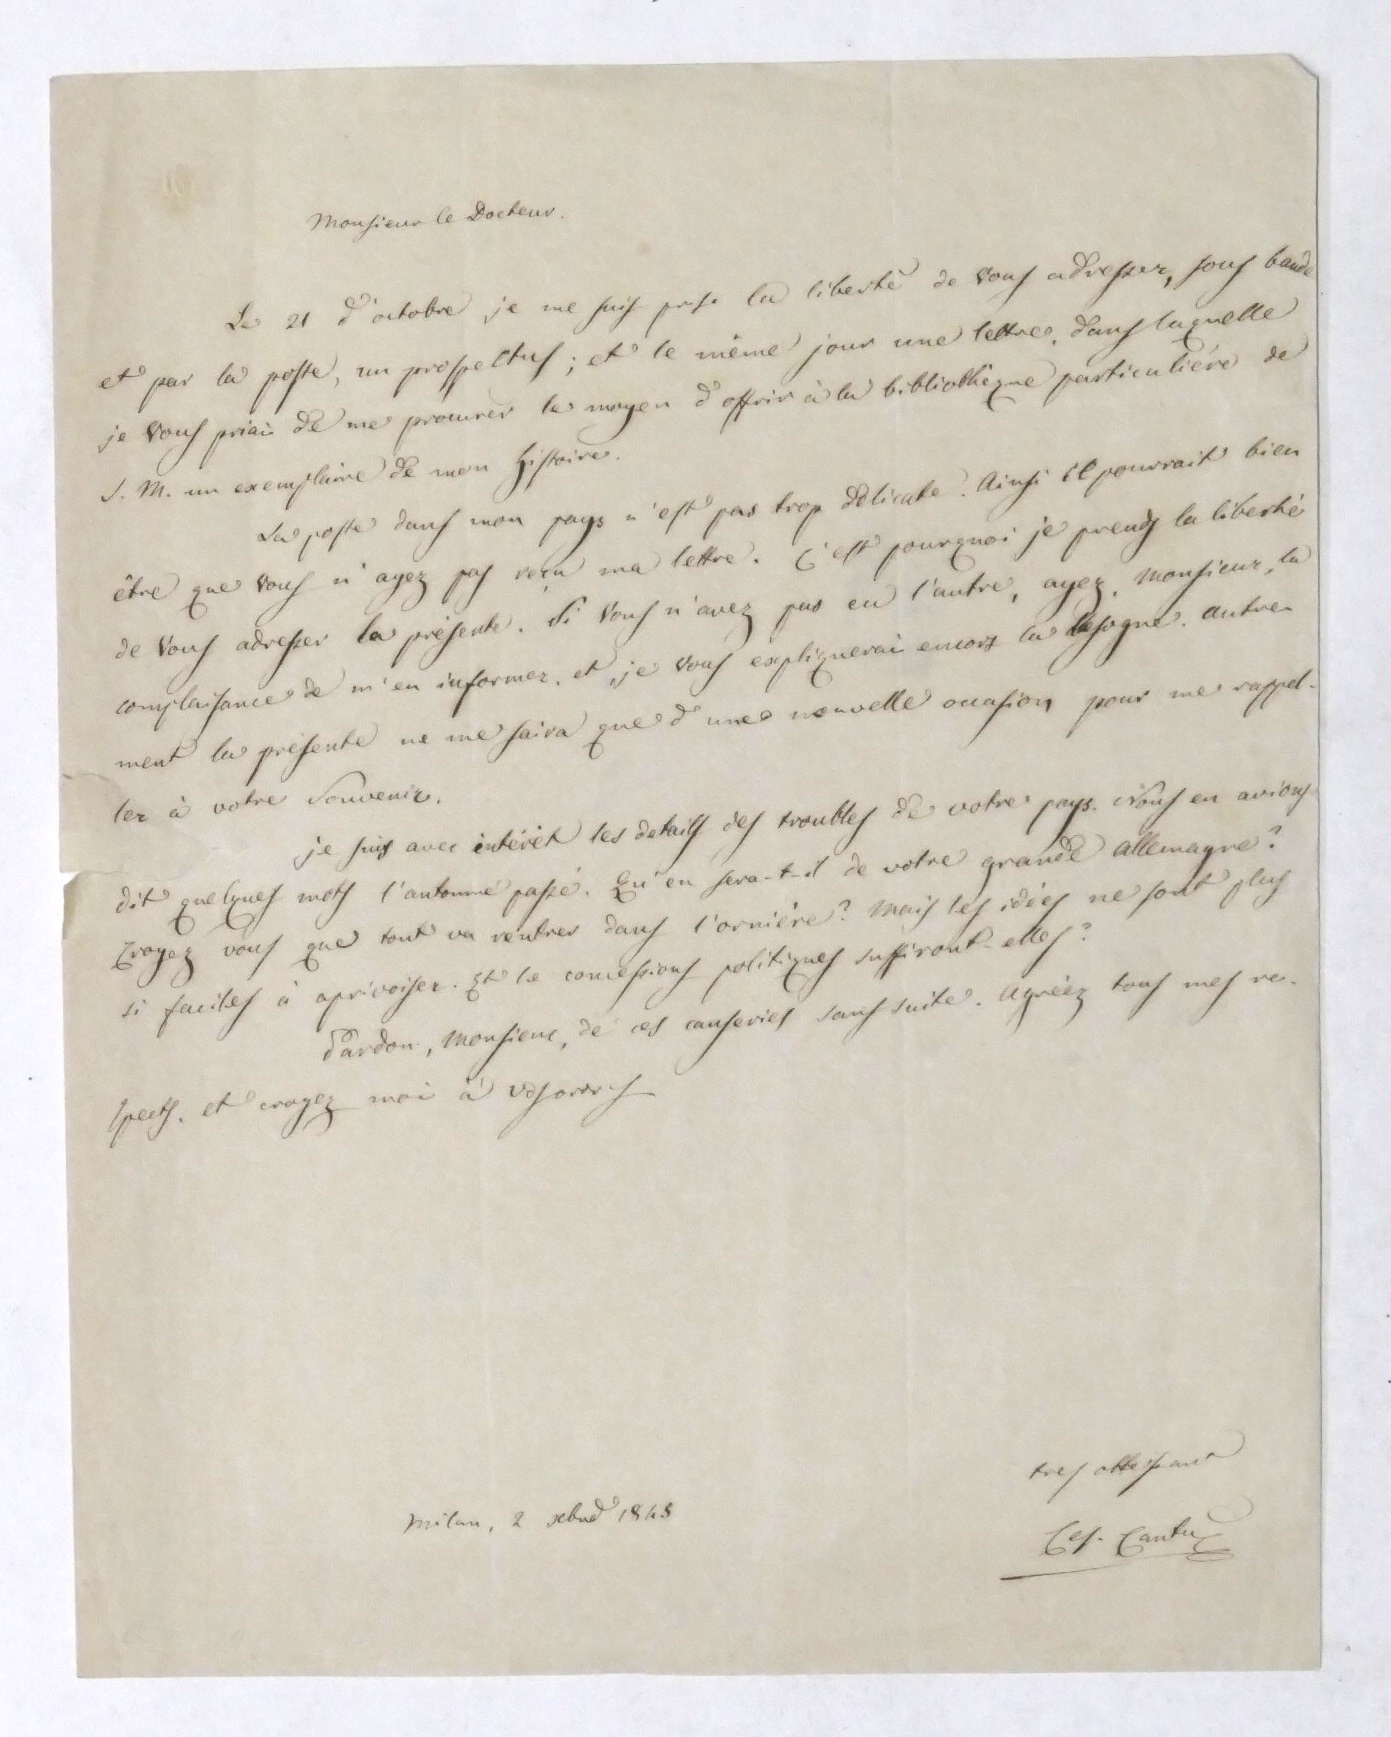 Monsieur le Docteur.
Le 21 d'octobre je me suis pris la liberté de vous adresser, sous bande
et par la poste, un prospectus; et le même jour une lettre, dans laquelle
je vous priais de me procurer le moyen d'offrir à la bibliothèque particulière de
S. M. un exemplaire de mon histoire.
La poste dans mon pays n'est pas trop délicate. Ainsi il pourrait bien
être que vous n'ayez pas reçu ma lettre. C'est pourquoi je prends la liberté
de vous adresser la présente. Si vous n'avez pas eu l'autre, ayez, Monsieur, la
complaisance de m'en informer, et je vous expliquerai encore la besogne. Autre-
ment la présente ne me saira que d'une nouvelle occasion pour me rappel-
ler à votre souvenir.
Je suis avec intérêt les details des troubles de votre pays. Nous en avions
dit quelques mots l'automne passé. Qu'en sera-t-il de votre grande Allemagne?
Croyez vous que tout va rentrer dans l'ornière? Mais les idées ne sont plus
si faciles à aprivoiser. Et le concessions politiques suffiront-elles?
Pardon, Monsieur, de ces causeries sans suite. Agréez tous mes re-
spects, et croyez moi à
tres obbeissant
Ces. Cantu
Milan, 2 184